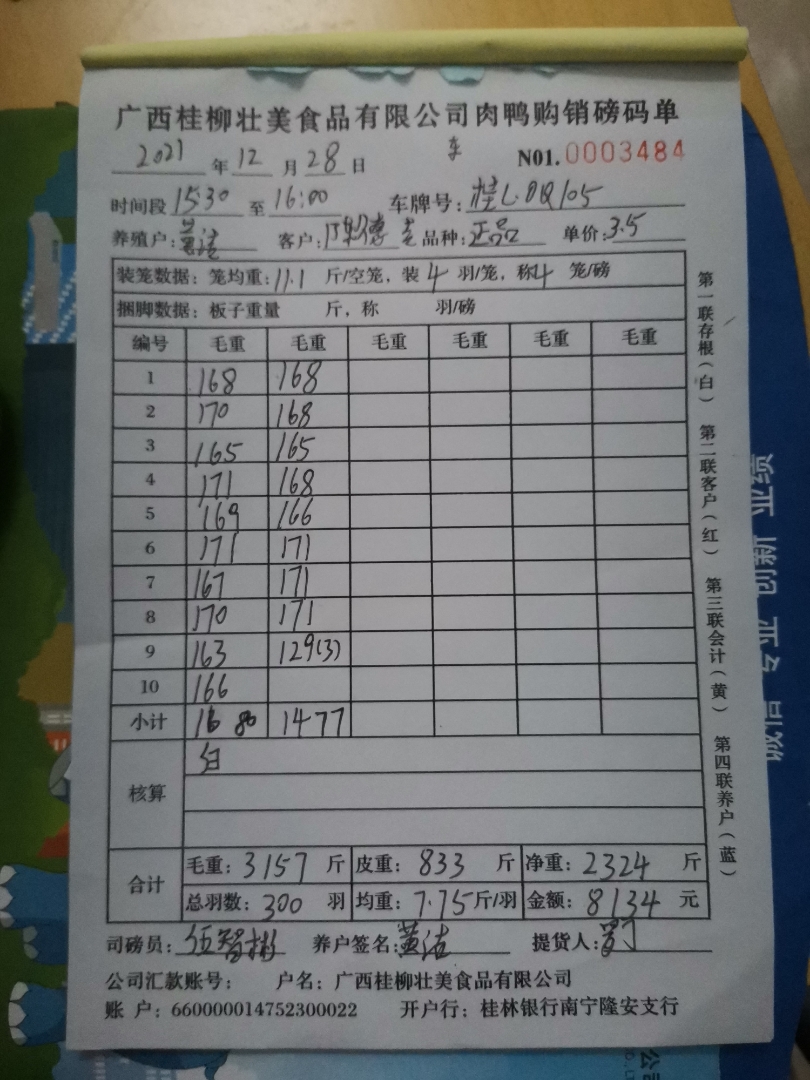 广西桂柳壮美食品有限公司肉鸭购销磅码单
2021 年 12 月 28 日 车 N01. 0003484
时间段 15:30 至 16:00 车牌号: 桂L·DQ105
养殖户: 黄洁 客户: 品种: 正品 单价: 3.5
装笼数据: 笼均重: 11.1 斤/空笼, 装 4 羽/笼, 称 4 笼/磅
捆脚数据: 板子重量 斤, 称 羽/磅
编号 毛重 毛重 毛重 毛重 毛重 毛重
1 168 168
2 170 168
3 165 165
4 171 168
5 169 166
6 171 171
7 167 171
8 170 171
9 163 129(3)
10 166
小计 1680 1477
核算
合计 毛重: 3157 斤 皮重: 833 斤 净重: 2324 斤
总羽数: 300 羽 均重: 7.75 斤/羽 金额: 8134 元
司磅员: 伍智彬 养户签名: 黄洁 提货人:
公司汇款账号: 户名: 广西桂柳壮美食品有限公司
账 户: 660000014752300022 开户行: 桂林银行南宁隆安支行
第一联存根(白) 第二联客户(红) 第三联会计(黄) 第四联养户(蓝)
诚信 专业 创新 业绩